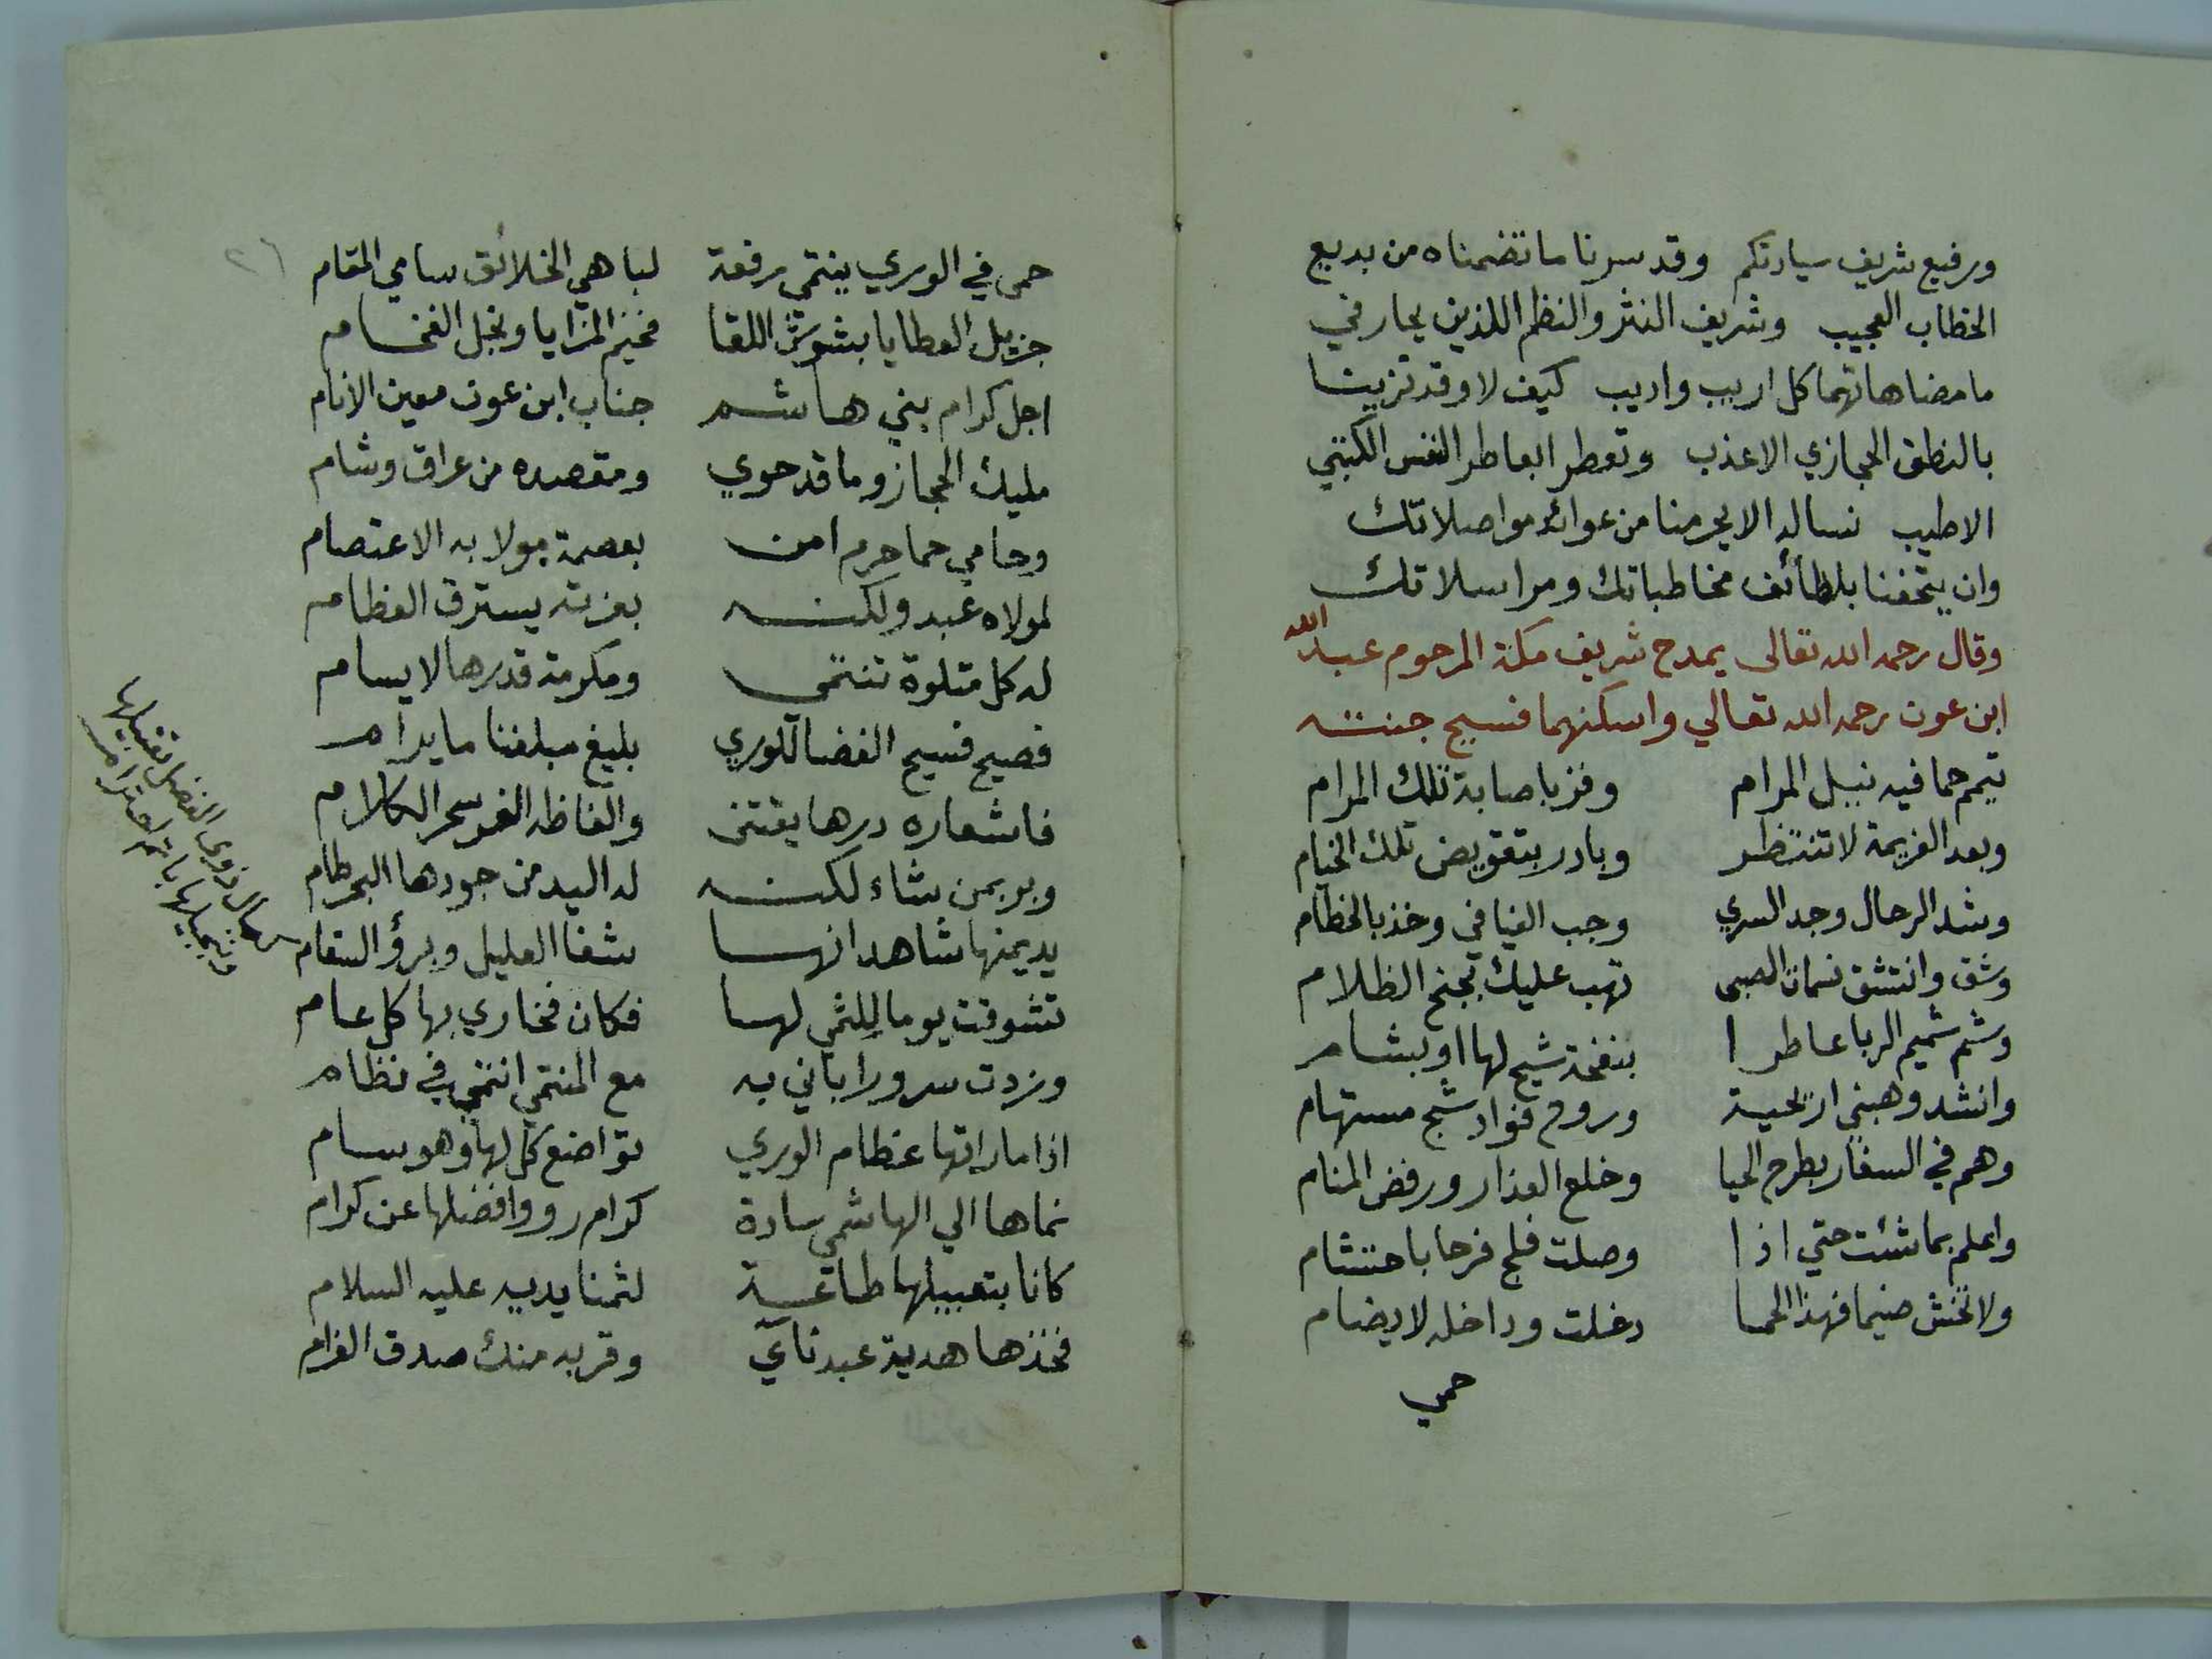 ورفيع شريف سيادتكم وقد سرنا ما تضمناه من بديع
الخطاب العجيب وشريف النثر والنظم اللذين يحار في
ما مضاهاتهما كل اريب واديب كيف لا وقد تزينا
بالنطق الحجازي الاعذب وتعطرا بعاطر النفس الكتبي
الاطيب نساله الا يحرمنا من عوائد مواصلاتك
وان يتحفنا بلطائف مخاطباتك ومراسلاتك
وقال رحمه الله تعالى يمدح شريف مكة المرحوم عبد الله
ابن عون رحمه الله تعالي واسكنهما فسيح جنته
تيمم حما فيه نيل المرام وفز باصابة تلك المرام
وبعد العزيمة لا تنتظر وبادر بتقويض تلك الخيام
وشد الرحال وجد السري وجب الفيافي وخذ بالخطام
وشق وانتشق نسمات الصبى تهب عليك بجنح الظلام
وشم شميم الربا عاطرا بنفحة شيح لها او بشام
وانشد وهبني اريحية وروح فواد شج مستهام
وهم في السفار بطرح الحيا وخلع العذار ورفض المنام
واعلم بما شئت حتي اذا وصلت فلج فرحا باحتشام
ولا تخش ضيما فهذا الحما دخلت وداخله لا يضام
حمي
٢٦
حمى في الوري ينتمي رفعة لباهي الخلائق سامي المقام
جزيل العطايا بشوش اللقا فخيم المزايا ونجل الفخام
اجل كرام بني هاشم جناب ابن عون معين الانام
مليك الحجاز وما قد حوي ومقصده من عراق وشام
وحامي حما حرم امن بعصمة مولا به الاعتصام
لمولاه عبد ولكنه بعزته يسترق العظام
له كل متلوة تنتمى ومكرمة قدرها لا يسام
فصيح فسيح الفضا للوري بليغ مبلغنا ما يرام
فاشعاره درها يقتنى والفاظه الغر سحر الكلام
وبر بمن شاء لكنه له اليد من جودها البحر طام
يد يمنها شاهد انها شفا العليل وبرؤ السقام
تشوقت يوما للثمي لها فكان فخاري بها كل عام
وزدت سرورا باني به مع المنتمي انتمي في نظام
اذا ما راتها عظام الوري تواضع كل لها وهو سام
نماها الي الهاشمي سادة كرام رووا فضلها عن كرام
كانا بتقبيلها طاعة لثمنا يديه عليه السلام
فخذها هدية عبد نآي وقربه منك صدق الغرام
كمال ذوى الفضل تقبيلها
وتبجيلها باتم احترام